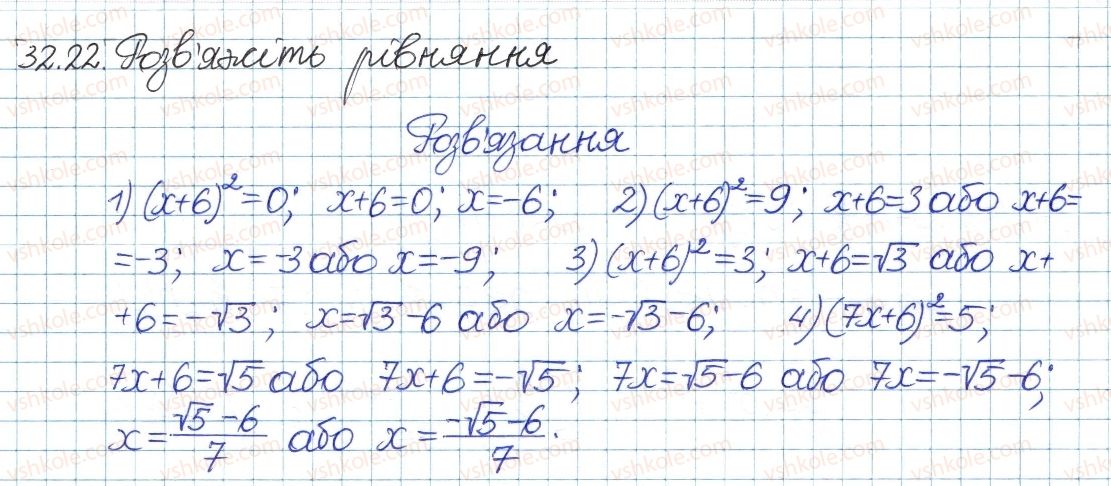 32.22. Розв'яжіть рівняння
Розв'язання
1) (x+6)²=0; x+6=0; x=-6; 2) (x+6)²=9; x+6=3 або x+6=
=-3; x=-3 або x=-9; 3) (x+6)²=3; x+6=√3 або x+
+6=-√3; x=√3-6 або x=-√3-6; 4) (7x+6)²=5;
7x+6=√5 або 7x+6=-√5; 7x=√5-6 або 7x=-√5-6;
x=(√5-6)/7 або x=(-√5-6)/7.